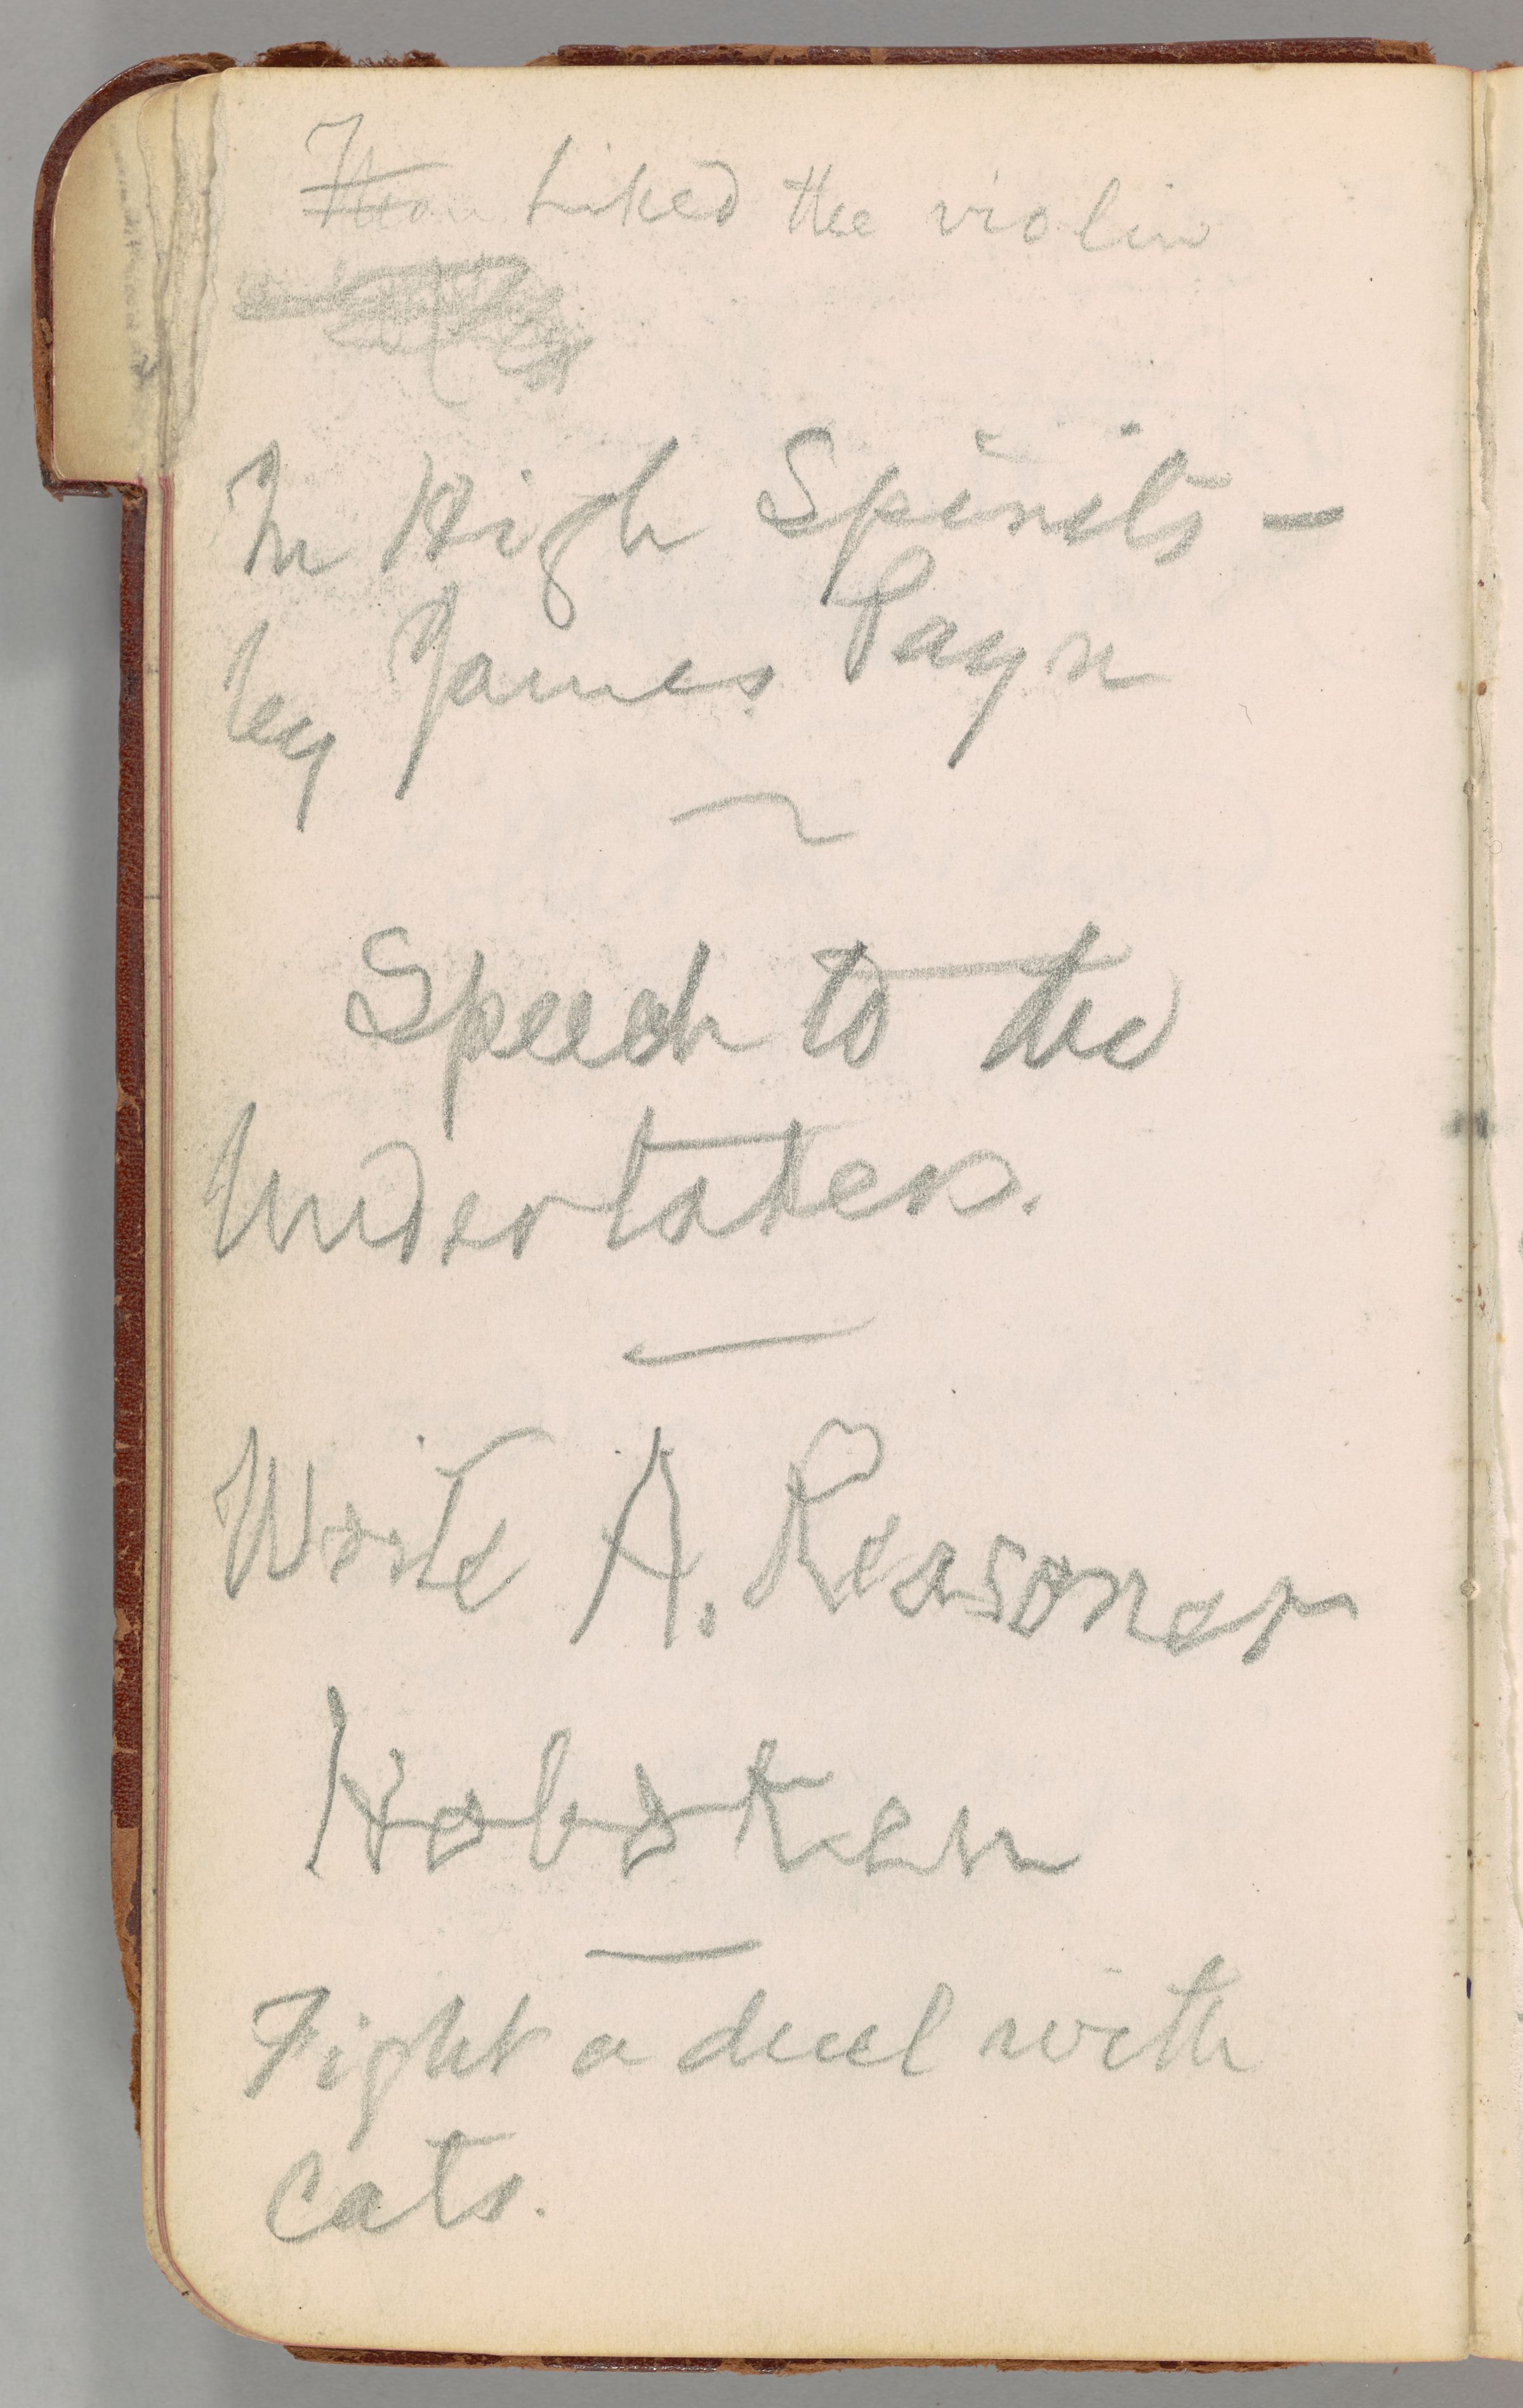 liked the violin
In High Spirits —
by James Payn
Speech to the
Undertakers.
Write A. Reasoner
Hoboken
Fight a duel with
cats.